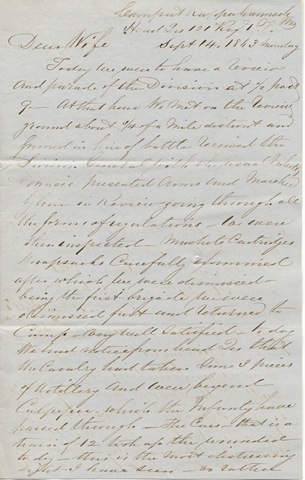 Camp at Rappahannock
Head Qrs 121 Reg
Dear Wife Sept 14. 1863 Monday
Today we were to have a review
and parade of the Division at ½ past
9 - At that hour We met on the review
ground about ¾ of a Mile distant and
formed in line of battle received the
Division General with the usual
music presented Arms and Marched
in review going through all
the forms of regulations - We were
then inspected - Muskets Cartridges
Knapsacks Carefully examined
after which we were dismissed
being the first brigade we were
first and returned to
Camp - very well satisfied - to day
We had notice from head Qrs that
the Cavalry had taken some 3 pieces
of Artillery and were beyond
Culpeper - which the Infantry have
passed through - the Cars - that is a
train of 12 took up the
to day - this is the most
sight I have seen - or rather